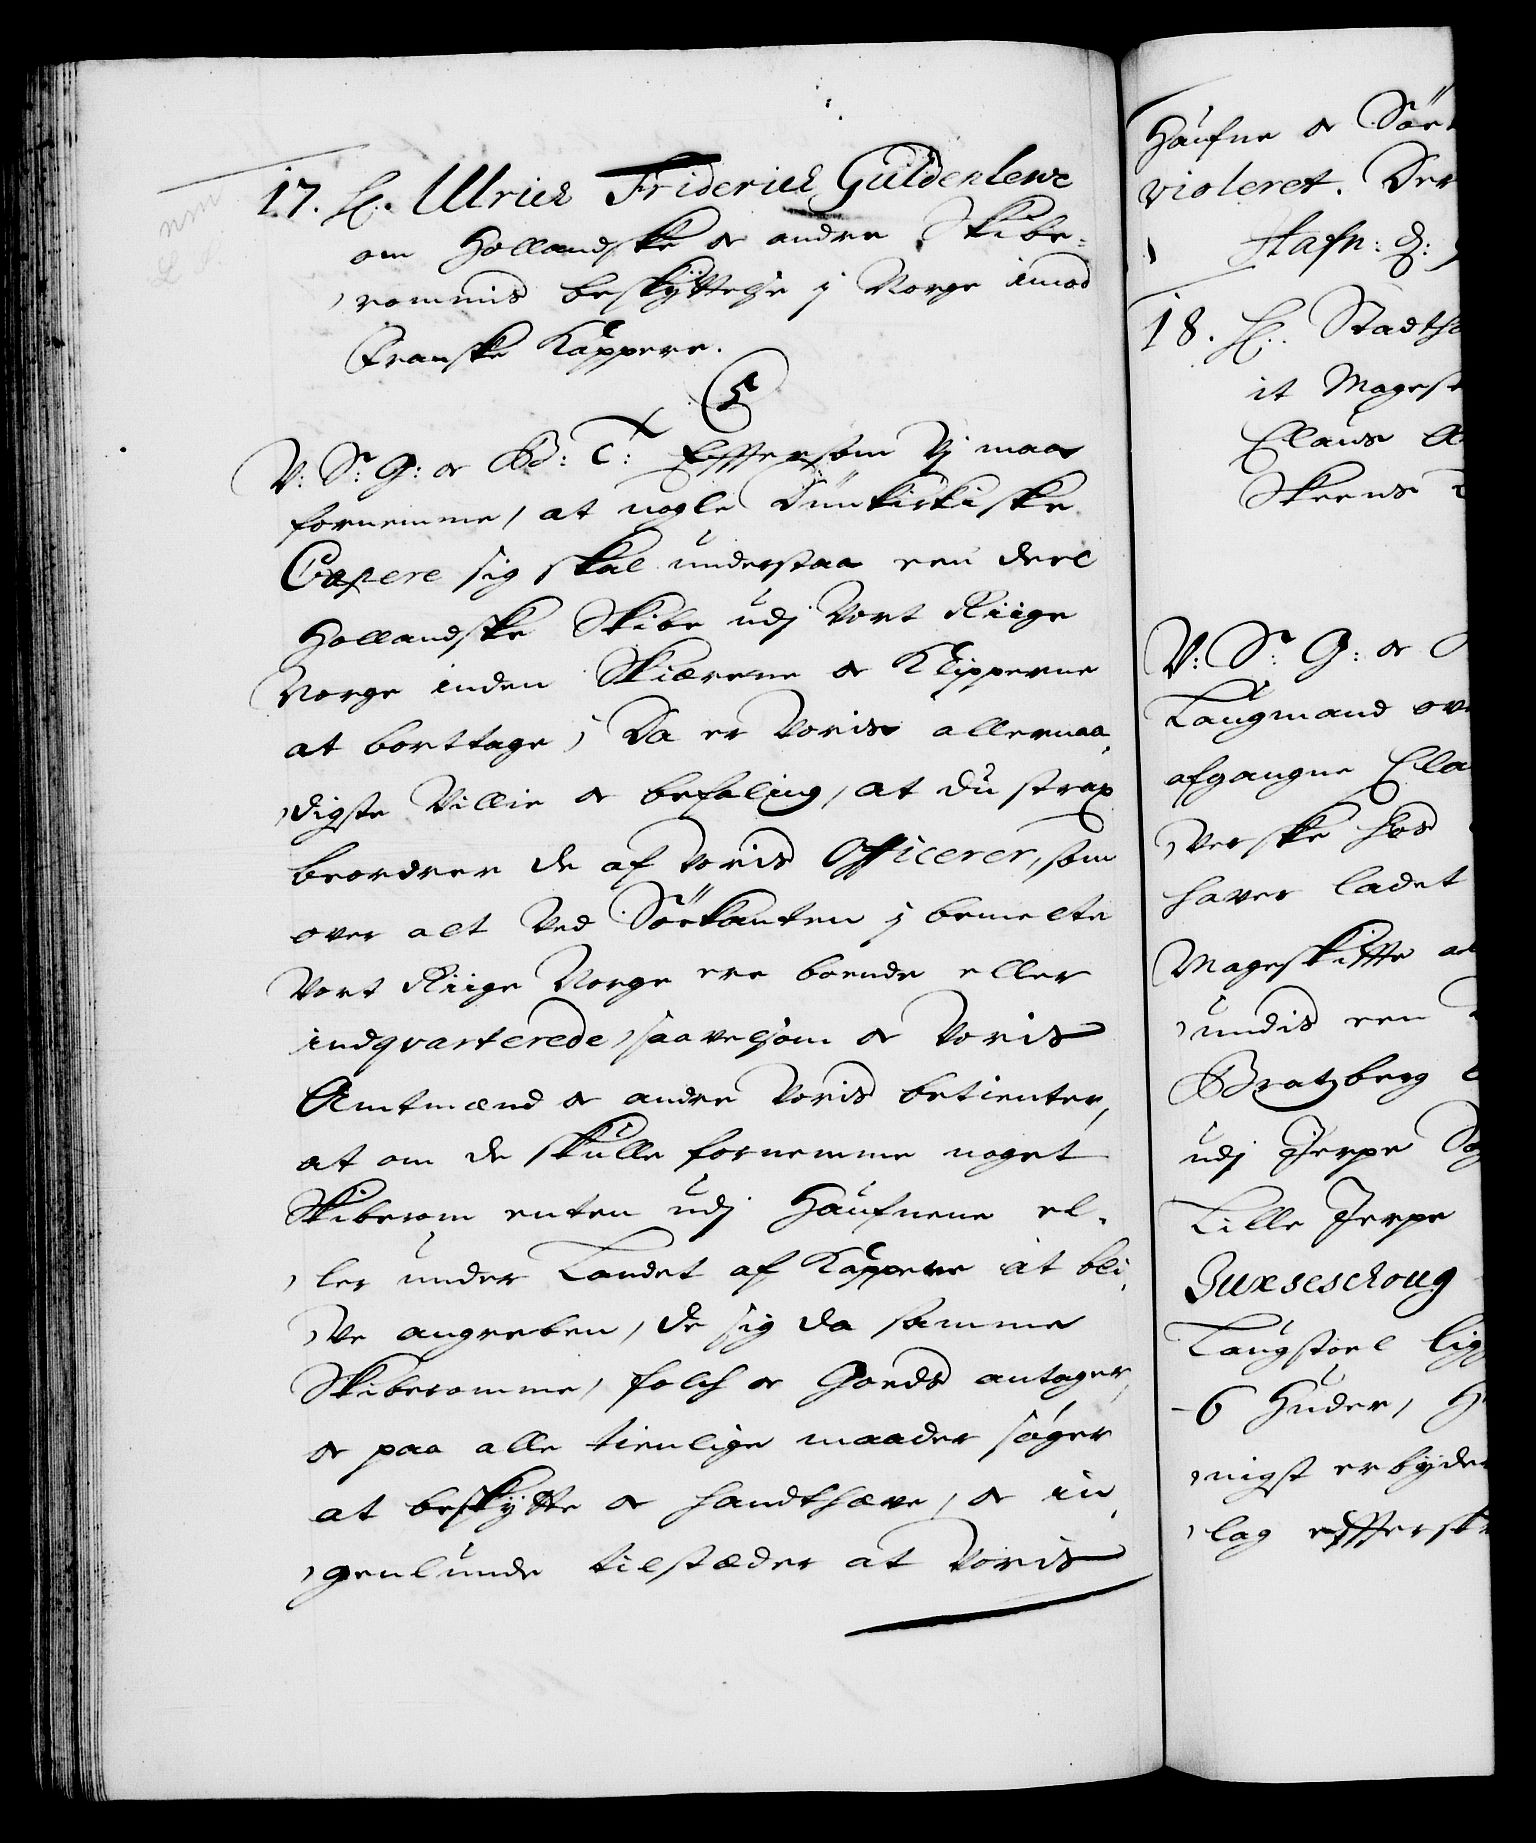 17. H. Ulrich Friderich Guldenlewe
om Hollandske oc andre Skibe-
rommis beskÿttelse i Norge imod
Franske Kappere.
V: Sr: G: oc Bd: T: Efftersom Vj maa
fornemme, at nogle Dünkirkiske
Capere sig skal understaa een deel
Hollandske Skibe udj Vort Riige
Norge inden Skiærene oc Klipperne
at borttage, Da er Voris allernaa,
digste Villie oc befaling, at du strax
beordrer de af Voris Officerer, som
over alt Ved Söekanten j bemelte
Vort Riige Norge ere boende eller
indqvarterede, saavelsom oc Voris
Amtmænd oc andre Voris betienter,
at om de skulle fornemme noget
Skiberom enten udj Haufnene el,
ler under Landet af Kappere at bli,
ve angreben, de sig da samme
Skiberomme, folch oc Goeds antager,
oc paa alle tienlige maader søger
at beskÿtte oc handthæve, oc in,
genlunde tilstæder at Voris
Haufne oc Söe
violeret. Der
Hafn: d:
18. H. Stadth
it Magesk
Claus A
Skeens
V: Sr: G: oc
Laugmand ov
afgangne Cla
Verske hos
haver ladet
Mageskiffte
undis een
Bratzberg
udj Jerpe So
Lille Jerpe
Buxseschoug
Laugstoel lig
6 Huder, H
nigst erbyder
lag effterskr